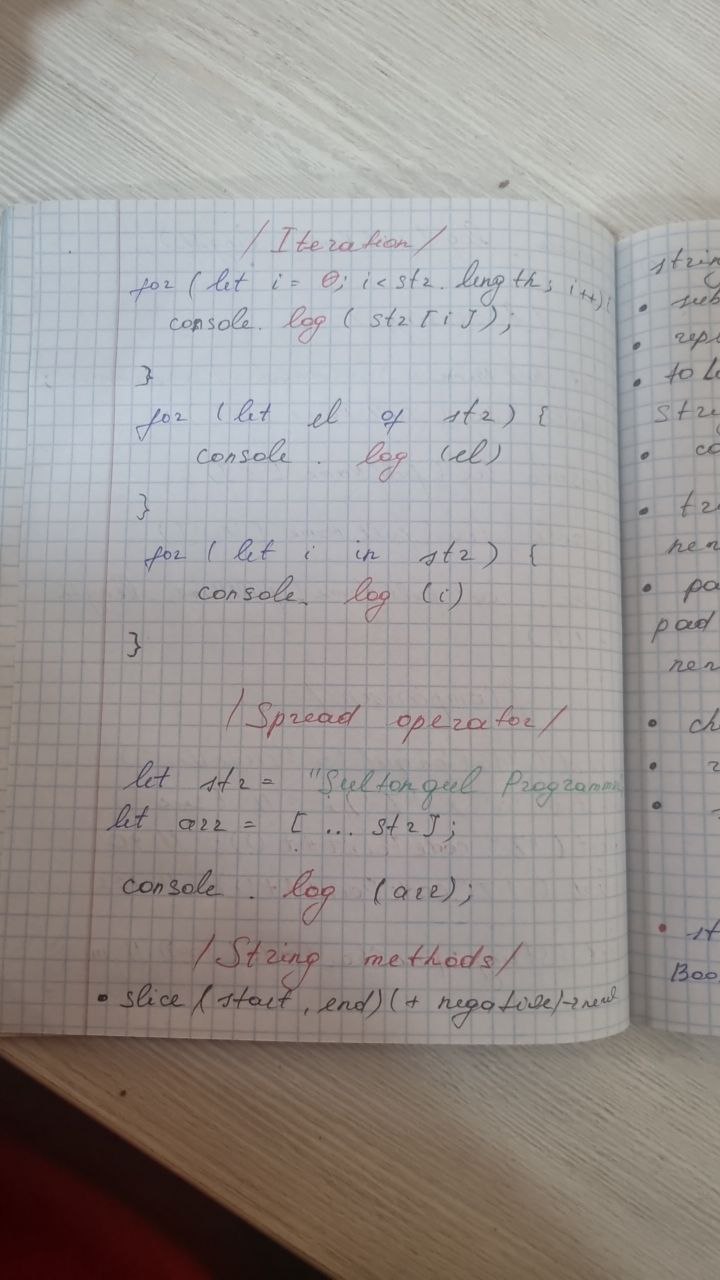 /Iteration/
for (let i = 0; i < str. length; i++){
console. log ( str [i] );
}
for (let el of str) {
console . log (el)
}
for ( let i in str) {
console. log (i)
}
/Spread operator/
let str = "Sultongul Programmi
let arr = [ ... str];
console . log (arr);
/String methods/
• slice (start, end)(+ negative)→new
string
• sub
• repl
• to L
str
• co
• tr
• pa
pad
• ch
• st
Boo